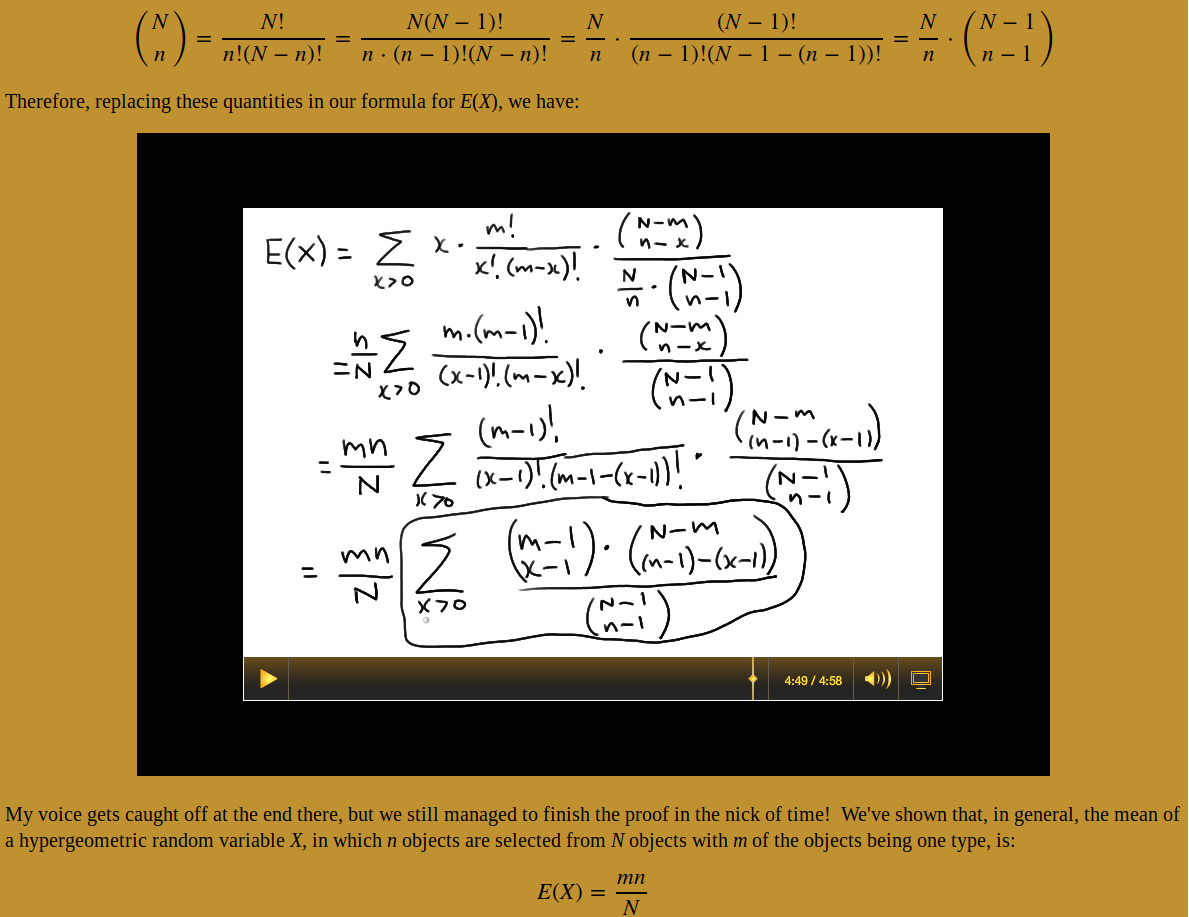 (N n) = N! / n!(N − n)! = N(N − 1)! / n · (n − 1)!(N − n)! = N/n · (N − 1)! / (n − 1)!(N − 1 − (n − 1))! = N/n · (N − 1 n − 1)
Therefore, replacing these quantities in our formula for E(X), we have:
E(X) = ∑ x>0 x · m! / x!·(m−x)! · (N−m n−x) / N/n · (N−1 n−1)
= n/N ∑ x>0 m·(m−1)! / (x−1)!·(m−x)! · (N−m n−x) / (N−1 n−1)
= mn/N ∑ x>0 (m−1)! / (x−1)!·(m−1−(x−1))! · (N−m (n−1)−(x−1)) / (N−1 n−1)
= mn/N ∑ x>0 (m−1 x−1) · (N−m (n−1)−(x−1)) / (N−1 n−1)
4:49 / 4:58
My voice gets caught off at the end there, but we still managed to finish the proof in the nick of time! We've shown that, in general, the mean of
a hypergeometric random variable X, in which n objects are selected from N objects with m of the objects being one type, is:
E(X) = mn/N